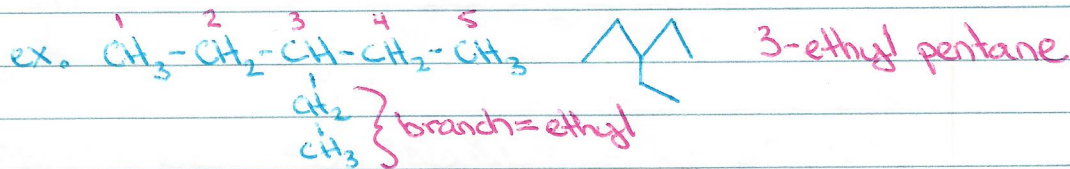 1 2 3 4 5
ex. CH₃-CH₂-CH-CH₂-CH₃ 3-ethyl pentane
CH₂
CH₃ } branch=ethyl